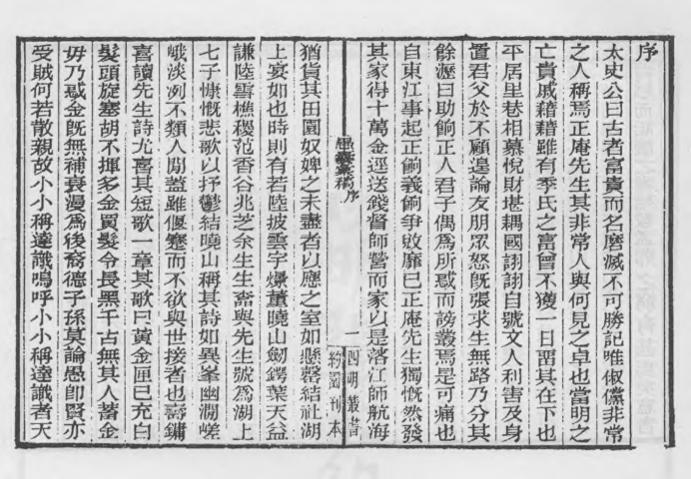 序
太史公曰古者富貴而名磨滅不可勝記唯俶儻非常
之人稱焉正庵先生其非常人與何見之卓也當明之
亡貴戚藉藉雖有季氏之富曾不獲一日畱其在下也
平居里巷相慕悅財堪耦國詡詡自號文人利害及身
置君父於不顧遑論友朋眾怒旣張求生無路乃分其
餘瀝曰助餉正人君子偶爲所惑而謗叢焉是可痛也
自東江事起正餉義餉爭敗靡巳正庵先生獨慨然發
其家得十萬金逕送錢督師營而家以是落江師航海
彙稿 序
一
四明叢書
約園刊本
猶貨其田園奴婢之未盡者以應之室如懸罄結社湖
上宴如也時則有若陸披雲宇董曉山劒鍔葉天益
謙陸雪樵范香谷兆芝余生生與先生號爲湖上
七子慷慨悲歌以抒鬱結曉山稱其詩如異峯幽澗嵯
峨淡冽不類人閒蓋雖偃蹇而不欲與世接者也壽鏞
喜讀先生詩尤喜其短歌一章其歌曰黃金匣巳充白
髮頭旋塞胡不揮多金買髮令長黑千古無其人蓄金
毋乃惑金旣無補衰漫爲後裔德子孫莫論愚卽賢亦
受賊何若散親故小小稱達識嗚呼小小稱達識者天